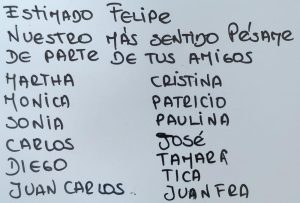 Estimado Felipe
Nuestro más sentido pésame
de parte de tus amigos
Martha Cristina
Monica Patricio
Sonia Paulina
Carlos José
Diego Tamara
Juan Carlos.. Tica
Juanfra